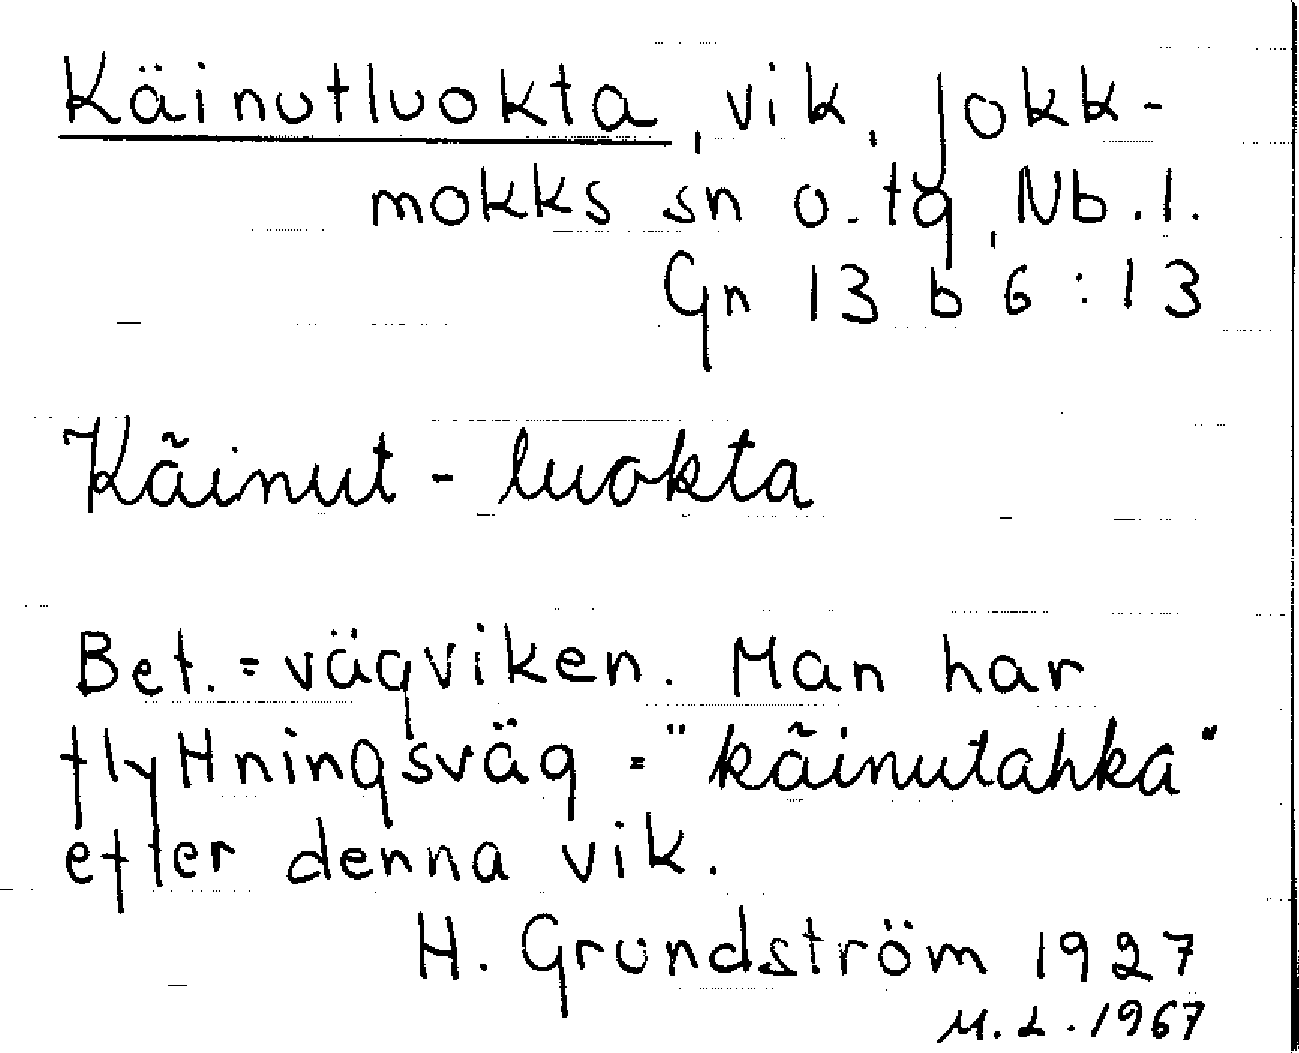 Käinutluokta, vik, Jokk-
mokks sn o. tg, Nb. l.
Gn 13 b 6:13
Kãinut - luokta
Bet. = vägviken. Man har
flyttningsväg = "kãinutahka"
efter denna vik.
H. Grundström 1927
M.L. 1967